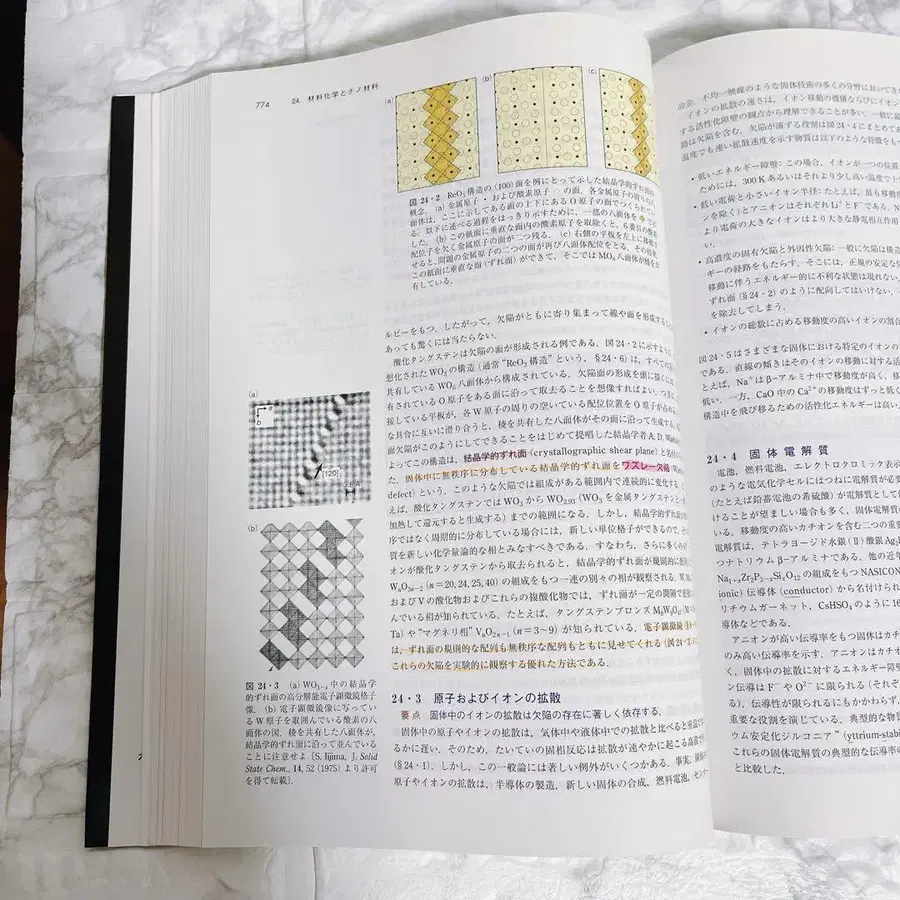 774 24. 材料化学とナノ材料
(a)
(b)
(c)
図 24・2 ReO₃ 構造の (100) 面を例にとって示した結晶学的ずれ面の
概念.(a) 金属原子・および酸素原子 ○ の面.
面体は,ここに示してある面の上下にある O 原子の面で
る.以下に述べる過程をはっきり示すために,一部の八面体を
した.(b) この紙面に垂直な面内の酸素原子を取除くと,
配位子を欠く金属原子の面が二つ残る.(c) 右側の平板を左上に移動
せると,問題の金属原子の二つの面が再び八面体配位をとる.
この紙面に垂直な面(ずれ面)ができて,そこでは MO₆ 八面体が稜を
有している.
ルビーをもつ.したがって,欠陥がともに寄り集まって線や面を形成する
あっても驚くには当たらない.
酸化タングステンは欠陥の面が形成される例である.図 24・2 に示すように
想化された WO₃ の構造(通常 “ReO₃ 構造” という.§24・6)は,すべての
共有している WO₆ 八面体から構成されている.欠陥面の形成を頭に描くに
有されている O 原子をある面に沿って取去ることを想像すればよい.
接している平板が,各 W 原子の周りの空いている配位位置を O 原子が
な具合に互いに滑り合うと,稜を共有した八面体がその面に沿って生成する.
面欠陥がこのようにしてできることをはじめて提唱した結晶学者 A. D.
よってこの構造は,結晶学的ずれ面 (crystallographic shear plane) と名
た.固体中に無秩序に分布している結晶学的ずれ面をワズレー欠陥
defect) という.このような欠陥では組成がある範囲内で連続的に変化する.
えば,酸化タングステンでは WO₃ から WO₂.₉₃ (WO₃ を金属タングステン
加熱して還元すると生成する)までの範囲になる.しかし,結晶学的ずれ面が
序ではなく周期的に分布している場合には,新しい単位格子ができるので,
質を新しい化学量論的な相とみなすべきである.すなわち,さらに多くの
オンが酸化タングステンから取去られると,結晶学的ずれ面が
WₙO₃ₙ₋₂ (n=20, 24, 25, 40) の組成をもつ一連の別々の相が観察される.
および V の酸化物およびこれらの複酸化物では,ずれ面が一定の間隔で
んでいる相が知られている.たとえば,タングステンブロンズ
Ta) や “マグネリ相” VₙO₂ₙ₋₁ (n=3〜9) が知られている.電子顕微鏡
は,ずれ面の規則的な配列も無秩序な配列もともに見せてくれる(図 24・3)
これらの欠陥を実験的に観察する優れた方法である.
(a)
a
b
[120]
(b)
図 24・3 (a) WO₃₋ₓ 中の結晶学
的ずれ面の高分解能電子顕微鏡格子
像.(b) 電子顕微鏡像に写ってい
る W 原子を取囲んでいる酸素の八
面体の図.稜を共有した八面体が,
結晶学的ずれ面に沿って並んでいる
ことに注意せよ [S. Iijima, J. Solid
State Chem., 14, 52 (1975) より許可
を得て転載].
24・3 原子およびイオンの拡散
要点 固体中のイオンの拡散は欠陥の存在に著しく依存する.
固体中の原子やイオンの拡散は,気体中や液体中での拡散と比べると
るかに遅い.そのため,たいていの固相反応は拡散が速やかに起こる高温で
(§24・1).しかし,この一般論には著しい例外がいくつかある.事実,
原子やイオンの拡散は,半導体の製造,新しい固体の合成,燃料電池,
冶金,不均一触媒のような固体技術の多くの分野においてき
イオンの拡散の速さは,イオン移動の機構ならびにイオン
する活性化障壁の観点から理解できることが多い.一般に
路は欠陥を含む.欠陥が演ずる役割は図 24・4 にまとめて
温度でも速い拡散速度を示す物質は以下のような特徴をも
・低いエネルギー障壁:この場合,イオンが一つの位置
ためには,300 K あるいはそれより少し高い温度で十
・低い電荷と小さいイオン半径:たとえば,最も移動
ンを除く)とアニオンはそれぞれ Li⁺ と F⁻ である.
より電荷の大きなイオンはより大きな静電相互作用
い.
・高濃度の固有欠陥と外因性欠陥:一般に欠陥は構造
ギーの経路をもたらす.そこには,正規の安定な
移動に伴うエネルギー的に不利な状態は現れない.
ずれ面 (§24・2) のように配向してはいけない.
を除去してしまう.
・イオンの総数に占める移動度の高いイオンの割合
図 24・5 はさまざまな固体における特定のイオンの
である.直線の傾きはそのイオンの移動に対する活
とえば,Na⁺ は β-アルミナ中で移動度が高く,移
低い.一方,CaO 中の Ca²⁺ の移動度はずっと低く
構造中を飛び移るための活性化エネルギーは高い.
24・4 固体電解質
電池,燃料電池,エレクトロクロミック表示
のような電気化学セルにはつねに電解質が必要
(たとえば鉛蓄電池の希硫酸)が電解質として
けることが望ましい場合も多く,固体電解質の
いる.移動度の高いカチオンを含む二つの重要
電解質は,テトラヨージド水銀(Ⅱ)酸銀 Ag₂
つナトリウム β-アルミナである.他の近年
Na₁₊ₓZr₂P₃₋ₓSiₓO₁₂ の組成をもつ NASICON
ionic) 伝導体 (conductor) から名付けられ
リチウムガーネット,CsHSO₄ のように 16
導体などである.
アニオンが高い伝導率をもつ固体はカチ
のみ高い伝導率を示す.アニオンはカチオ
く,固体中の拡散に対するエネルギー障壁
ン伝導は F⁻ や O²⁻ に限られる(それぞれ
る).伝導性が限られるにもかかわらず,
重要な役割を演じている.典型的な物質
ウム安定化ジルコニア” (yttrium-stabi
これらの固体電解質の典型的な伝導率の
と比較した.